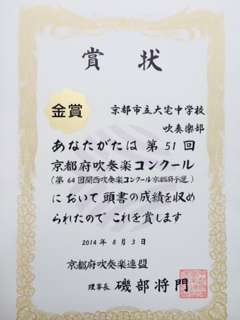 賞状
金賞
京都市立大宅中学校
吹奏楽部
あなたがたは第51回
京都府吹奏楽コンクール
(第64回関西吹奏楽コンクール京都府予選)
において頭書の成績を収め
られたのでこれを賞します
2014年8月3日
京都府吹奏楽連盟
理事長 磯部将門